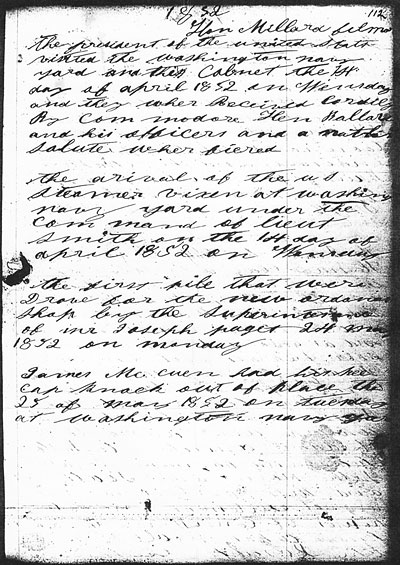 1852
112
Hon Millard filmo
the president of the united Stats
visited the washington navy
yard and this Cabnet the 14
day of april 1852 on Wensday
and they wher Received Cordily
By Commodore Hen Ballard
and his officers and a nath
Salute wher fiered
the arival of the u s
Steamer vixen at washing
navy yard under the
Com mand of lieut
Smith on the 14 day of
april 1852 on Wensday
the first pile that were
Drove for the new ordanc
Shop by the Superin
of mr Joseph paget 24 may
1852 on monday
James Mc cuen had his kne
cap knock out of place the
25 of may 1852 on tuesday
at washington navy yar